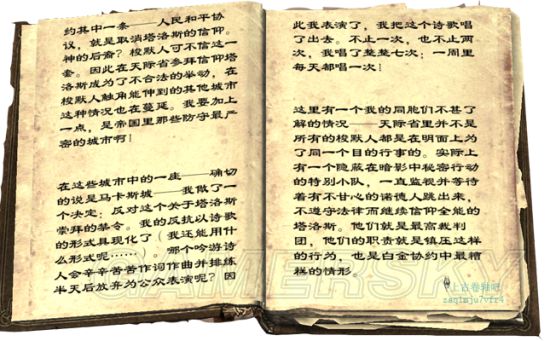 约其中一条——人民和平协
议，就是取消塔洛斯的信仰。
神的后裔？梭默人可不信这一
套。因此在天际省参拜信仰塔
洛斯成为了不合法的举动，在
梭默人触角能伸到的其他城市
这种情况也在蔓延。我要加上
一点，是帝国里那些防守最严
密的城市啊！
在这些城市中的一座——确切
的说是马卡斯城——我做了一
个决定：反对这个关于塔洛斯
崇拜的禁令。我的反抗以诗歌
的形式具现化了（我还能用什
么形式呢······。哪个吟游诗
人会辛辛苦苦作词作曲并排练
半天后放弃为公众表演呢？因
此我表演了，我把这个诗歌唱
了出去。不止一次，也不止两
次，我唱了整整七次：一周里
每天都唱一次！
这里有一个我的同胞们不甚了
解的情况——天际省里并不是
所有的梭默人都是在明面上为
了同一个目的行事的。实际上
有一个隐蔽在暗影中秘密行动
的特别小队，一直监视并等待
着有不甘心的诺德人跳出来，
不遵守法律而继续信仰全能的
塔洛斯。他们就是最高裁判
团，他们的职责就是镇压这样
的行为，也是白金协约中最糟
糕的情形。
GAMERSKY
上古卷轴吧
zaq1mju7vfr4